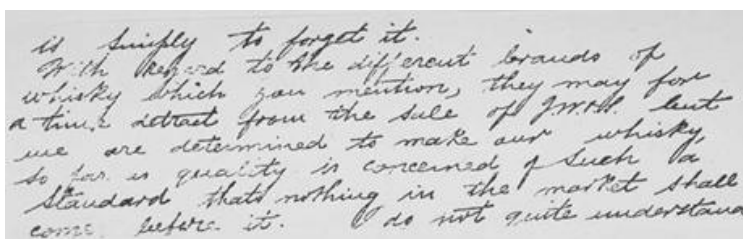 is simply to forget it.
With regard to the different brands of
whisky which you mention, they may for
a time detract from the sale of J.W.&S. but
we are determined to make our whisky,
so far as quality is concerned of such a
standard that nothing in the market shall
come before it. I do not quite understand